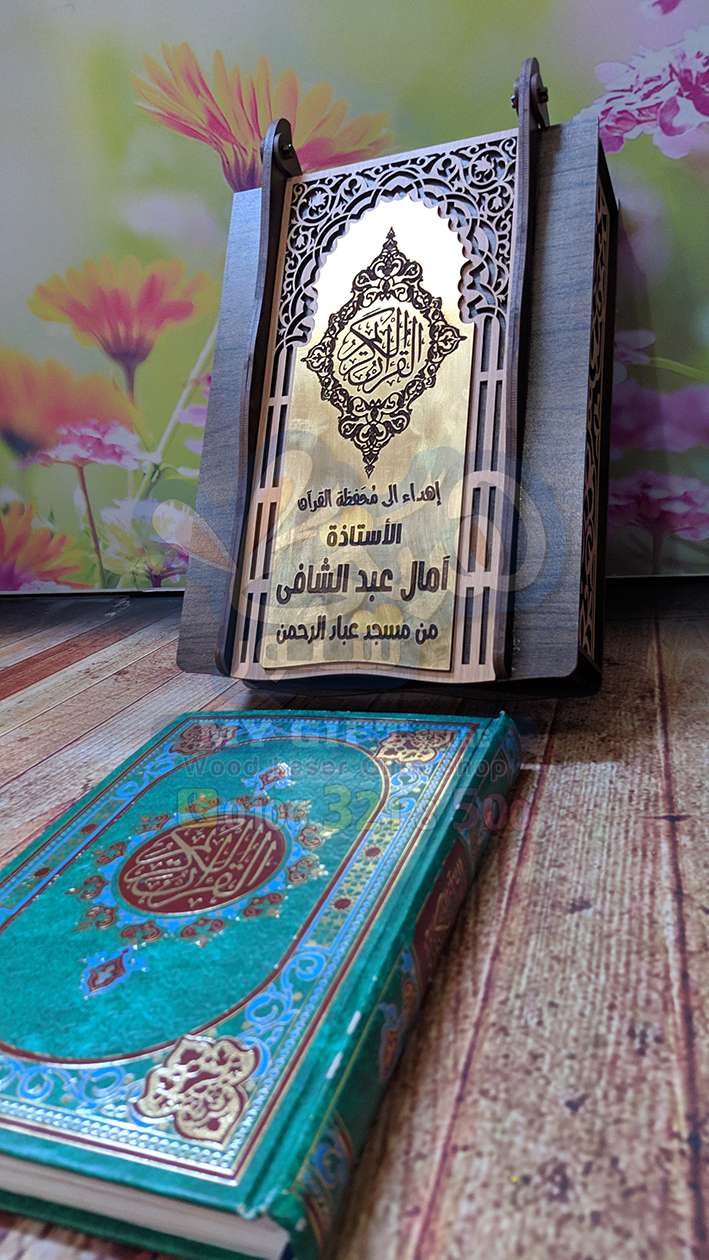 القرآن الكريم
إهداء الى مُحَفِظة القرآن
الأستاذة
آمال عبد الشافى
من مسجد عباد الرحمن
Wood Laser
القرآن الكريم